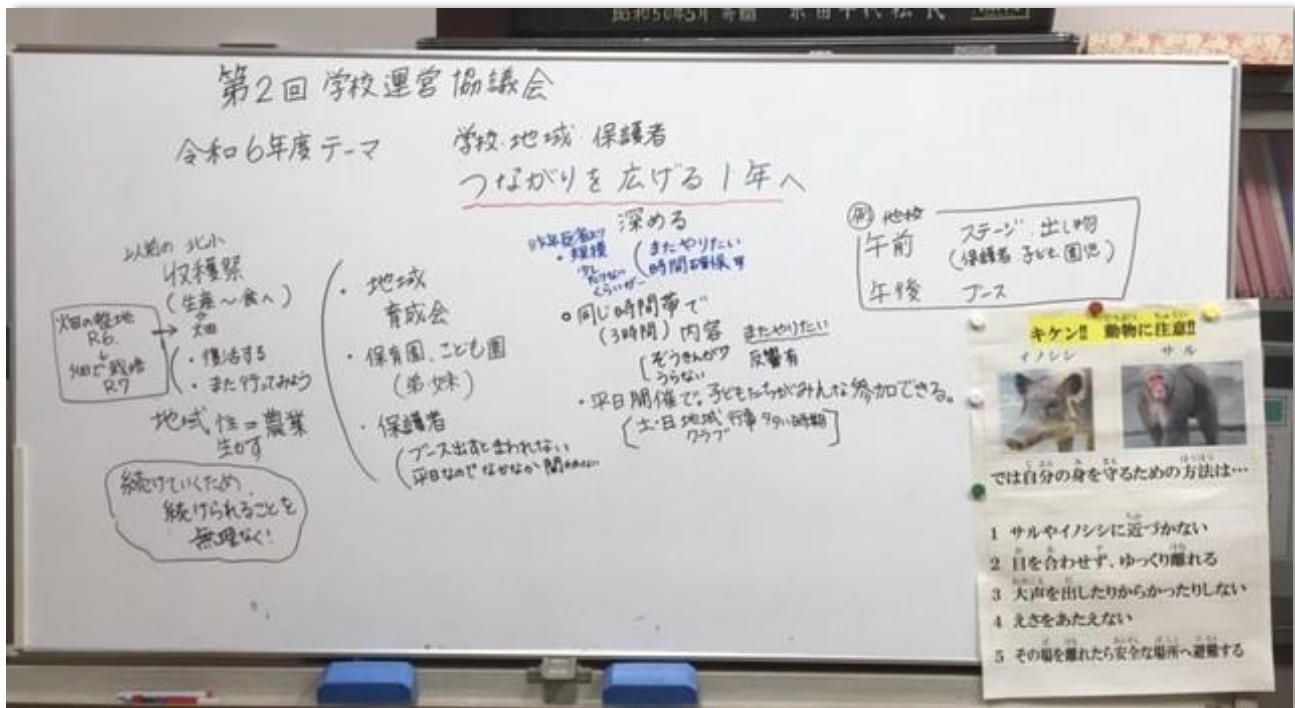 第2回 学校運営協議会
令和6年度テーマ
学校 地域 保護者
つながりを広げる1年へ
深める
以前の北小
収穫祭
(生産〜食へ)
畑
・復活する
・また行ってみよう
畑の整地
R6.
↓
畑で栽培
R7
地域性=農業
生かす
続けていくため
続けられることを
無理なく!
・地域
育成会
・保育園、こども園
(弟妹)
・保護者
ブース出すとまわれない
平日なのでなかなか
・規模
少し
くらいが
またやりたい
時間確保
・同じ時間帯で
(3時間) 内容 またやりたい
ぞうきんがけ 反響有
うらない
・平日開催で。子どもたちがみんな参加できる。
土・日 地域行事 多い時期
クラブ
例 他校
午前 ステージ 出し物
(保護者 子ども 園児)
午後 ブース
キケン!! 動物に注意!!
イノシシ サル
では自分の身を守るための方法は…
1 サルやイノシシに近づかない
2 目を合わせず、ゆっくり離れる
3 大声を出したりからかったりしない
4 えさをあたえない
5 その場を離れたら安全な場所へ避難する